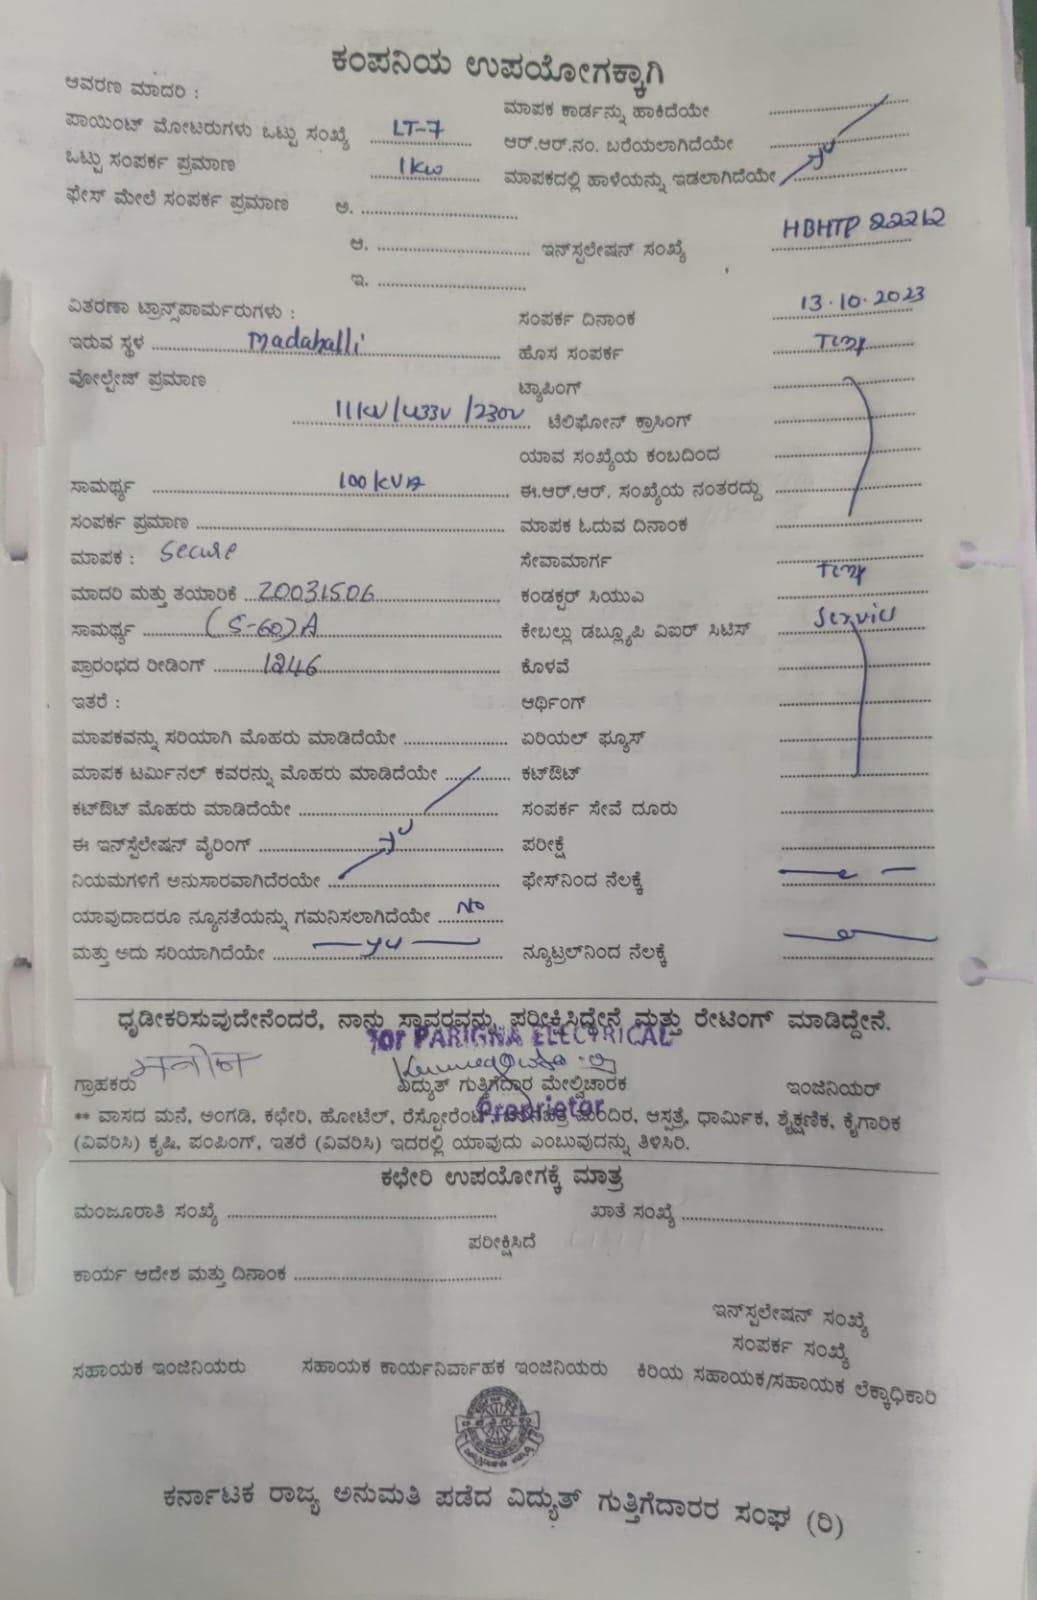 ಕಂಪನಿಯ ಉಪಯೋಗಕ್ಕಾಗಿ
ಆವರಣ ಮಾದರಿ :
ಮಾಪಕ ಕಾರ್ಡನ್ನು ಹಾಕಿದೆಯೇ
ಪಾಯಿಂಟ್ ಮೋಟರುಗಳು ಒಟ್ಟು ಸಂಖ್ಯೆ LT-7 ಆರ್.ಆರ್.ನಂ. ಬರೆಯಲಾಗಿದೆಯೇ
ಒಟ್ಟು ಸಂಪರ್ಕ ಪ್ರಮಾಣ 1kw ಮಾಪಕದಲ್ಲಿ ಹಾಳೆಯನ್ನು ಇಡಲಾಗಿದೆಯೇ
ಫೇಸ್ ಮೇಲೆ ಸಂಪರ್ಕ ಪ್ರಮಾಣ ಅ.
ಆ. ಇನ್‌ಸ್ಪಲೇಷನ್ ಸಂಖ್ಯೆ HBHTP 22212
ಇ.
ವಿತರಣಾ ಟ್ರಾನ್ಸ್‌ಪಾರ್ಮರುಗಳು : ಸಂಪರ್ಕ ದಿನಾಂಕ 13.10.2023
ಇರುವ ಸ್ಥಳ Madahalli ಹೊಸ ಸಂಪರ್ಕ Temp
ವೋಲ್ಟೇಜ್ ಪ್ರಮಾಣ ಟ್ಯಾಪಿಂಗ್
11kv/433v/230v ಟೆಲಿಫೋನ್ ಕ್ರಾಸಿಂಗ್
ಯಾವ ಸಂಖ್ಯೆಯ ಕಂಬದಿಂದ
ಸಾಮರ್ಥ್ಯ 100kVA ಈ.ಆರ್.ಆರ್. ಸಂಖ್ಯೆಯ ನಂತರದ್ದು
ಸಂಪರ್ಕ ಪ್ರಮಾಣ ಮಾಪಕ ಓದುವ ದಿನಾಂಕ
ಮಾಪಕ : Secure ಸೇವಾಮಾರ್ಗ
ಮಾದರಿ ಮತ್ತು ತಯಾರಿಕೆ 20031506 ಕಂಡಕ್ಟರ್ ಸಿಯುಎ Temp
ಸಾಮರ್ಥ್ಯ (5-60)A ಕೇಬಲ್ಲು ಡಬ್ಲ್ಯೂಪಿ ವಿಐಆರ್ ಸಿಟಿಸ್ Service
ಪ್ರಾರಂಭದ ರೀಡಿಂಗ್ 1246 ಕೊಳವೆ
ಇತರೆ : ಆರ್ಥಿಂಗ್
ಮಾಪಕವನ್ನು ಸರಿಯಾಗಿ ಮೊಹರು ಮಾಡಿದೆಯೇ ಏರಿಯಲ್ ಫ್ಯೂಸ್
ಮಾಪಕ ಟರ್ಮಿನಲ್ ಕವರನ್ನು ಮೊಹರು ಮಾಡಿದೆಯೇ ಕಟ್‌ಔಟ್
ಕಟ್‌ಔಟ್ ಮೊಹರು ಮಾಡಿದೆಯೇ ಸಂಪರ್ಕ ಸೇವೆ ದೂರು
ಈ ಇನ್‌ಸ್ಪೆಲೇಷನ್ ವೈರಿಂಗ್ ಪರೀಕ್ಷೆ
ನಿಯಮಗಳಿಗೆ ಅನುಸಾರವಾಗಿದೆರಯೇ ಫೇಸ್‌ನಿಂದ ನೆಲಕ್ಕೆ
ಯಾವುದಾದರೂ ನ್ಯೂನತೆಯನ್ನು ಗಮನಿಸಲಾಗಿದೆಯೇ No
ಮತ್ತು ಅದು ಸರಿಯಾಗಿದೆಯೇ ನ್ಯೂಟ್ರಲ್‌ನಿಂದ ನೆಲಕ್ಕೆ
ಧೃಡೀಕರಿಸುವುದೇನೆಂದರೆ, ನಾನು ಸ್ಥಾವರವನ್ನು ಪರೀಕ್ಷಿಸಿದ್ದೇನೆ ಮತ್ತು ರೇಟಿಂಗ್ ಮಾಡಿದ್ದೇನೆ.
for PARIGNA ELECTRICAL
ಗ್ರಾಹಕರು ವಿದ್ಯುತ್ ಗುತ್ತಿಗೆದಾರ ಮೇಲ್ವಿಚಾರಕ ಇಂಜಿನಿಯರ್
Proprietor
** ವಾಸದ ಮನೆ, ಅಂಗಡಿ, ಕಛೇರಿ, ಹೋಟೆಲ್, ರೆಸ್ಟೋರೆಂಟ್, ಮಂದಿರ, ಆಸ್ಪತ್ರೆ, ಧಾರ್ಮಿಕ, ಶೈಕ್ಷಣಿಕ, ಕೈಗಾರಿಕ
(ವಿವರಿಸಿ) ಕೃಷಿ, ಪಂಪಿಂಗ್, ಇತರೆ (ವಿವರಿಸಿ) ಇದರಲ್ಲಿ ಯಾವುದು ಎಂಬುವುದನ್ನು ತಿಳಿಸಿರಿ.
ಕಛೇರಿ ಉಪಯೋಗಕ್ಕೆ ಮಾತ್ರ
ಮಂಜೂರಾತಿ ಸಂಖ್ಯೆ ಖಾತೆ ಸಂಖ್ಯೆ
ಪರೀಕ್ಷಿಸಿದೆ
ಕಾರ್ಯ ಆದೇಶ ಮತ್ತು ದಿನಾಂಕ
ಇನ್‌ಸ್ಪಲೇಷನ್ ಸಂಖ್ಯೆ
ಸಂಪರ್ಕ ಸಂಖ್ಯೆ
ಸಹಾಯಕ ಇಂಜಿನಿಯರು ಸಹಾಯಕ ಕಾರ್ಯನಿರ್ವಾಹಕ ಇಂಜಿನಿಯರು ಕಿರಿಯ ಸಹಾಯಕ/ಸಹಾಯಕ ಲೆಕ್ಕಾಧಿಕಾರಿ
ಕರ್ನಾಟಕ ರಾಜ್ಯ ಅನುಮತಿ ಪಡೆದ ವಿದ್ಯುತ್ ಗುತ್ತಿಗೆದಾರರ ಸಂಘ (ರಿ)